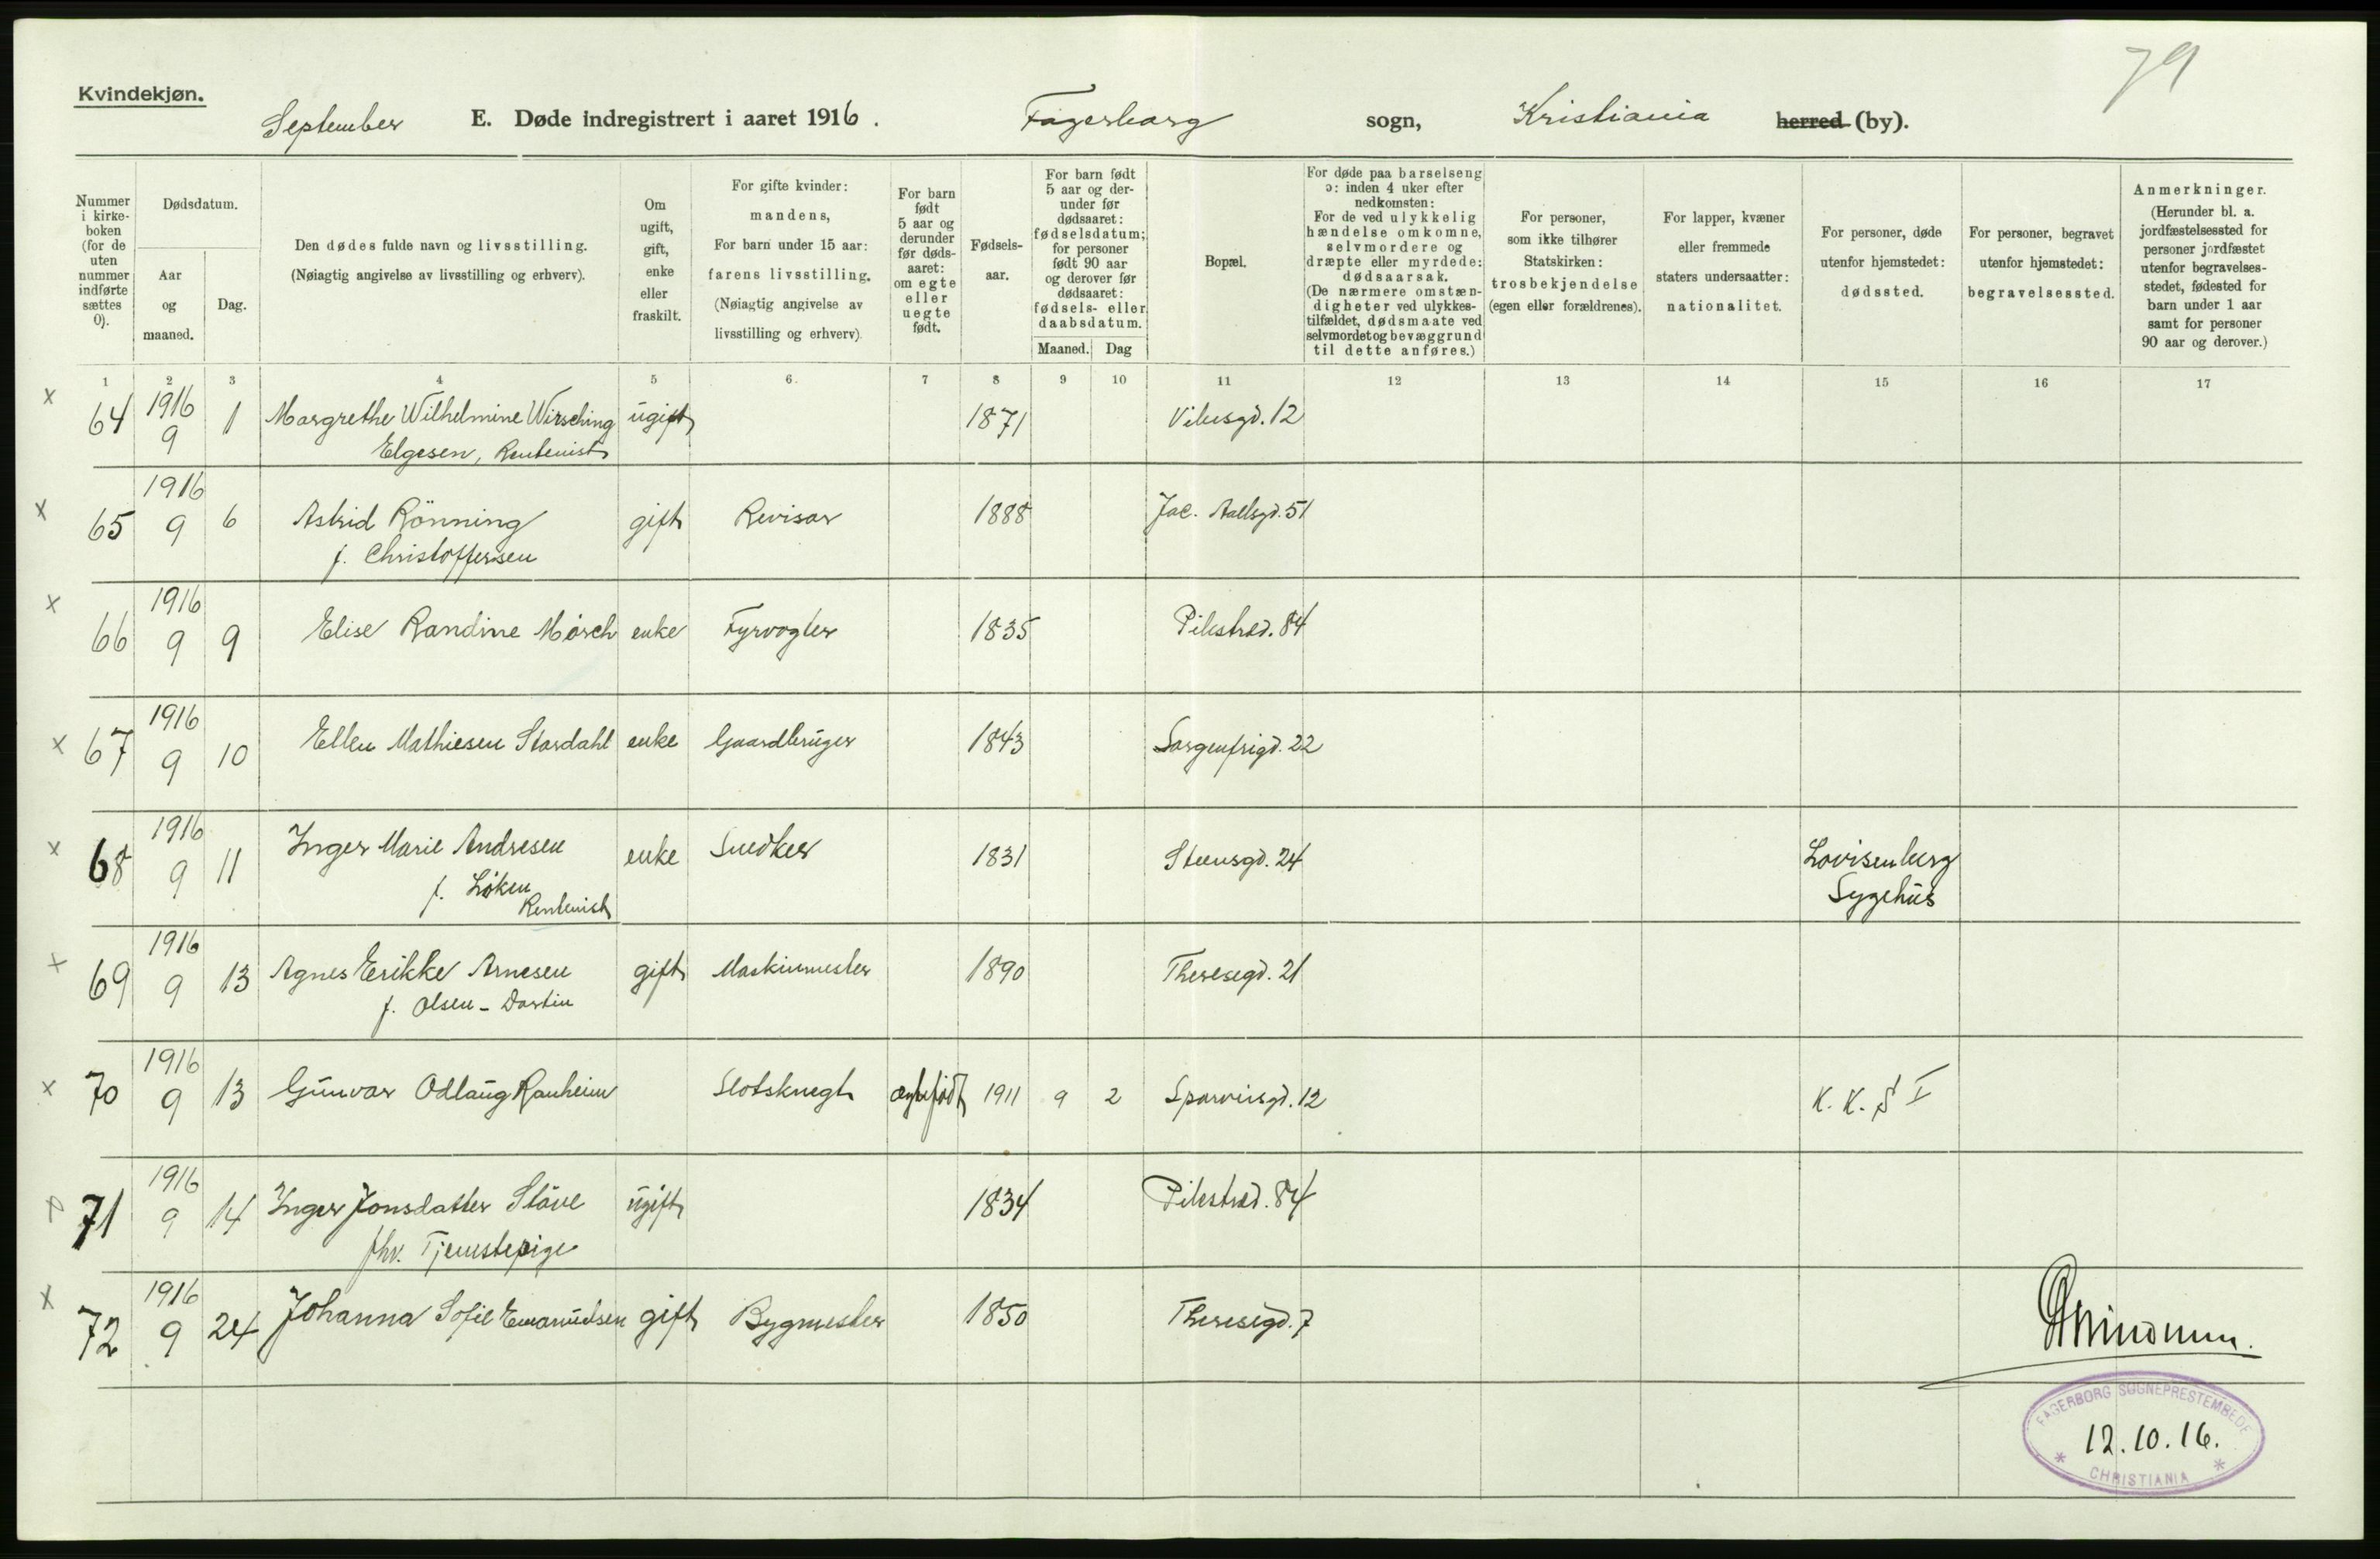 79
Kvindekjøn.
September E. Døde indregistrert i aaret 1916. Fagerborg sogn, Kristiania herred (by).
Nummer i kirkeboken (for de uten nummer indførte sættes 0).
Dødsdatum.
Aar og maaned.
Dag.
Den dødes fulde navn og livsstilling.
(Nøiagtig angivelse av livsstilling og erhverv).
Om ugift, gift, enke eller fraskilt.
For gifte kvinder: mandens,
For barn under 15 aar: farens livsstilling.
(Nøiagtig angivelse av livsstilling og erhverv).
For barn født 5 aar og derunder før dødsaaret: om egte eller uegte født.
Fødselsaar.
For barn født 5 aar og derunder før dødsaaret: fødselsdatum; for personer født 90 aar og derover før dødsaaret: fødsels- eller daabsdatum.
Maaned. Dag
Bopæl.
For døde paa barselseng ɔ: inden 4 uker efter nedkomsten:
For de ved ulykkelig hændelse omkomne, selvmordere og dræpte eller myrdede: dødsaarsak.
(De nærmere omstændigheter ved ulykkestilfældet, dødsmaate ved selvmordet og bevæggrund til dette anføres.)
For personer, som ikke tilhører Statskirken: trosbekjendelse (egen eller forældrenes).
For lapper, kvæner eller fremmede staters undersaatter: nationalitet.
For personer, døde utenfor hjemstedet: dødssted.
For personer, begravet utenfor hjemstedet: begravelsessted.
Anmerkninger.
(Herunder bl. a. jordfæstelsessted for personer jordfæstet utenfor begravelsesstedet, fødested for barn under 1 aar samt for personer 90 aar og derover.)
1 2 3 4 5 6. 7 8 9 10 11 12 13 14 15 16 17
x 64 1916 9 1 Margrethe Wilhelmine Wirsching ugift 1871 Vibesgd. 12
Elgesen, Rentenist
x 65 1916 9 6 Astrid Rönning gift Revisor 1888 Jac. Aallsgd. 51
f. Christoffersen
x 66 1916 9 9 Elise Randine Mörch enke Fyrvogter 1835 Pilestræd. 84
x 67 1916 9 10 Ellen Mathiesen Stordahl enke Gaardbruger 1843 Sorgenfrigd. 22
x 68 1916 9 11 Inger Marie Andresen enke Snedker 1831 Steensgd. 24 Lovisenberg
f. Löken Sygehus
Rentenist
x 69 1916 9 13 Agnes Erikke Arnesen gift Maskinmester 1890 Theresegd. 21
f. Olsen - Dortin
x 70 1916 9 13 Gunvor Odlaug Ranheim Slotsknegt ægtefödt 1911 9 2 Sporveisgd. 12 K. K. S I
71 1916 9 14 Inger Jonsdatter Stöve ugift 1834 Pilestræd. 84
fhv. Tjenestepige
x 72 1916 9 24 Johanna Sofie Emanuelsen gift Bygmester 1850 Theresegd. 7
FAGERBORG SOGNEPRESTEMBEDE
12.10.16.
* CHRISTIANIA *